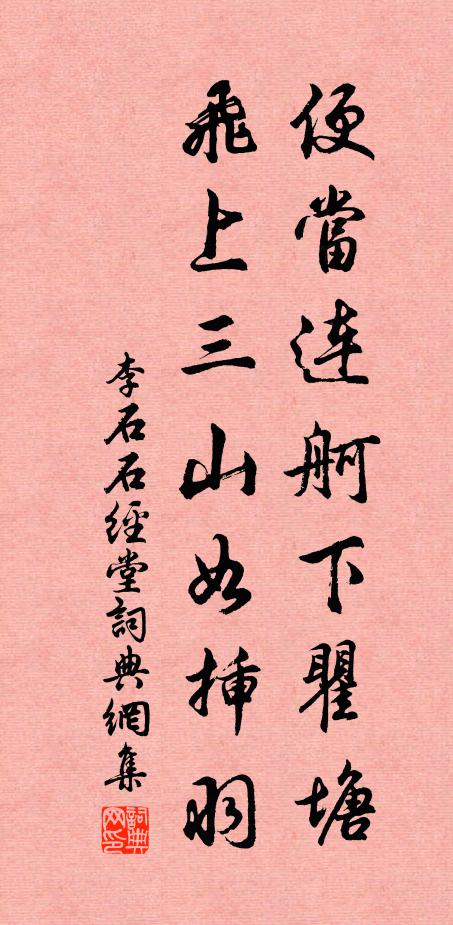 便當連舸下瞿塘
飛上三山如插羽
李石石經堂詞典網集
詞典网印